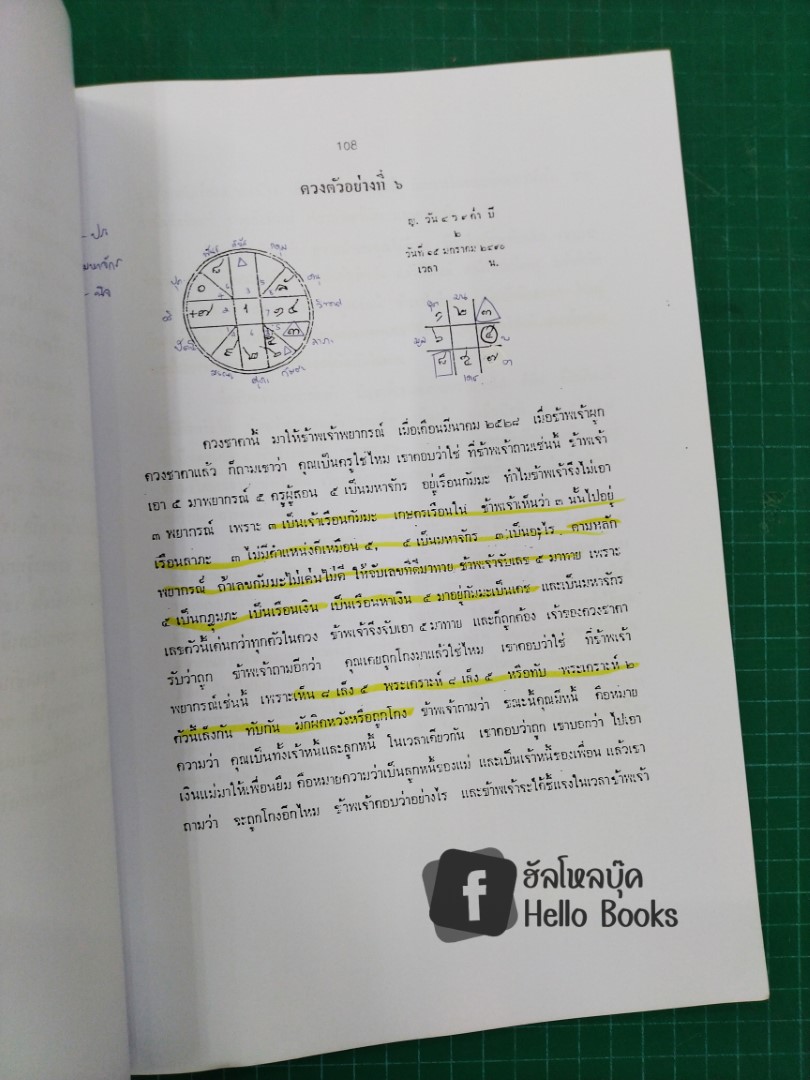 108
ดวงตัวอย่างที่ ๖
ญ. วัน ๔ ฯ ๙ ค่ำ ปี
๒
วันที่ ๑๕ มกราคม ๒๔๙๐
เวลา น.
มหาจักร
ดวงชาตานี้ มาให้ข้าพเจ้าพยากรณ์ เมื่อเดือนมีนาคม ๒๕๒๘ เมื่อข้าพเจ้าผูก
ดวงชาตาแล้ว ก็ถามเขาว่า คุณเป็นครูใช่ไหม เขาตอบว่าใช่ ที่ข้าพเจ้าถามเช่นนี้ ข้าพเจ้า
เอา ๕ มาพยากรณ์ ๕ ครูผู้สอน ๕ เป็นมหาจักร อยู่เรือนกัมมะ ทำไมข้าพเจ้าจึงไม่เอา
๓ พยากรณ์ เพราะ ๓ เป็นเจ้าเรือนกัมมะ เกษตรเรือนใน ข้าพเจ้าเห็นว่า ๓ นั้นไปอยู่
เรือนลาภะ ๓ ไม่มีตำแหน่งดีเหมือน ๕, ๕ เป็นมหาจักร ๓ เป็นอะไร ตามหลัก
พยากรณ์ ถ้าเลขกัมมะไม่เด่นไม่ดี ให้จับเลขที่ดีมาทาย ข้าพเจ้าจับเลข ๕ มาทาย เพราะ
๕ เป็นกฎุมภะ เป็นเรือนเงิน เป็นเรือนหาเงิน ๕ มาอยู่กัมมะเป็นเดช และเป็นมหาจักร
เลขตัวนี้เด่นกว่าทุกตัวในดวง ข้าพเจ้าจึงจับเอา ๕ มาทาย และก็ถูกต้อง เจ้าของดวงชาตา
รับว่าถูก ข้าพเจ้าถามอีกว่า คุณเคยถูกโกงมาแล้วใช่ไหม เขาตอบว่าใช่ ที่ข้าพเจ้า
พยากรณ์เช่นนี้ เพราะเห็น ๘ เล็ง ๕ พระเคราะห์ ๘ เล็ง ๕ หรือทับ พระเคราะห์ ๒
ตัวนี้เล็งกัน ทับกัน มักผิดหวังหรือถูกโกง ข้าพเจ้าถามว่า ขณะนี้คุณมีหนี้ คือหมาย
ความว่า คุณเป็นทั้งเจ้าหนี้และลูกหนี้ ในเวลาเดียวกัน เขาตอบว่าถูก เขาบอกว่า ไปเอา
เงินแม่มาให้เพื่อนยืม คือหมายความว่าเป็นลูกหนี้ของแม่ และเป็นเจ้าหนี้ของเพื่อน แล้วเขา
ถามว่า จะถูกโกงอีกไหม ข้าพเจ้าตอบว่าอย่างไร และข้าพเจ้าจะได้ชี้แจงในเวลาข้าพเจ้า
ฮัลโหลบุ๊ค
Hello Books